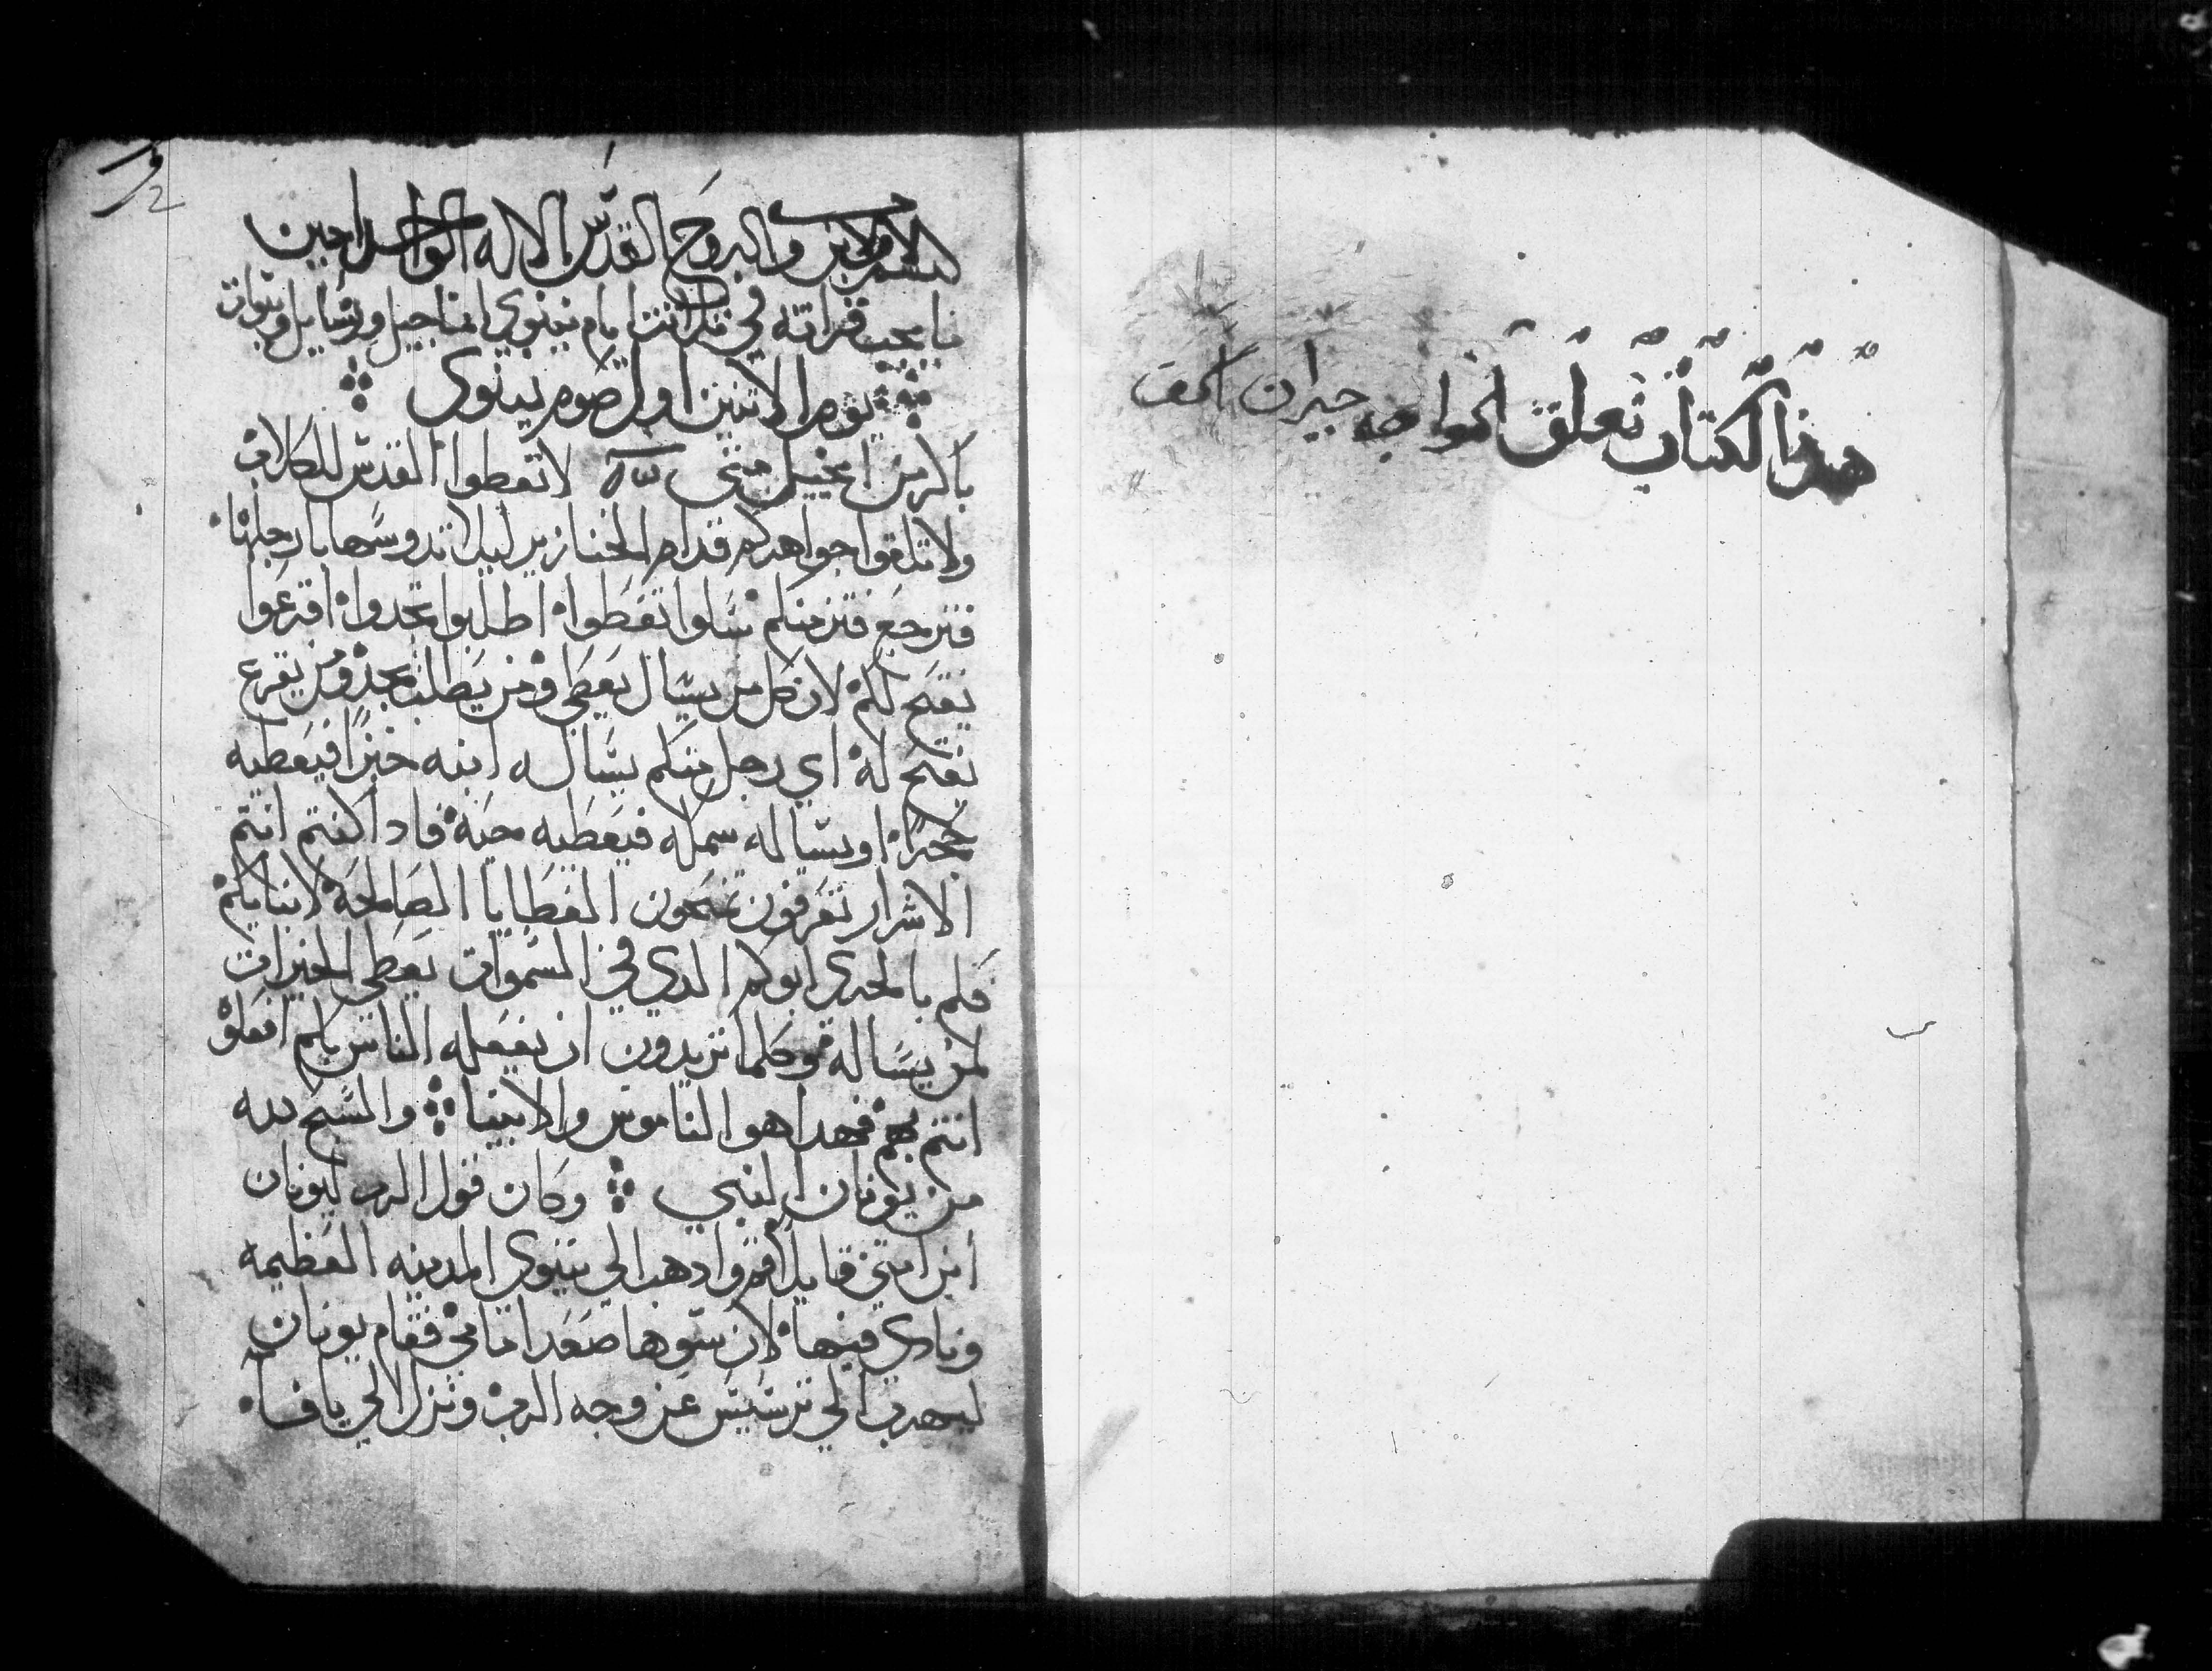 هذا الكتاب تعلق الخواجه جبران
2
بسم الاب والابن والروح القدس الاله الواحد امين
ما يجب قراته في ايام نينوي اناجيل ورسايل ونبوات
يوم الاتنين اول صوم نينوى
باكر من انجيل متى لا تعطوا القدس للكلاب
ولا تلقوا جواهركم قدام الخنازير ليلا تدوسها بارجلها
فترجع فتزمنكم سَلوا تعَطوا اطلبوا تجدوا اقرعَوا
يفتَح لكم لان كل من يسال يعَطي ومن يَطلب يجد ومن يقرع
يفتح له اي رجل منكم يسَال ه ابنه خبزًا فيعَطيه
حجرًا او يسَاله سمكه فيعَطيه حيَة فاد اكنتم انتم
الاشرار تعَرفون تمنحون العَطَايا الصَالحَة لابنايكم
فكم بالحري ابوكم الدي في السَموات يعَطي الخيرات
لمن يسَاله وكلما تريدون ان يفعَله الناس بكم افعَلو
انتم بهم فهدا هو الناموس والانبيا والسَبح لله
من يونان النبي وكان قول الرب ليونان
ابن امتي قايلًا قم وادهب الي نينوي المدينه العَظيمه
ونادي فيها لان سَوها صَعَد امامي فقام يونان
ليهرب الي ترسَيسَ عَن وجه الرب ونزل الي يافا